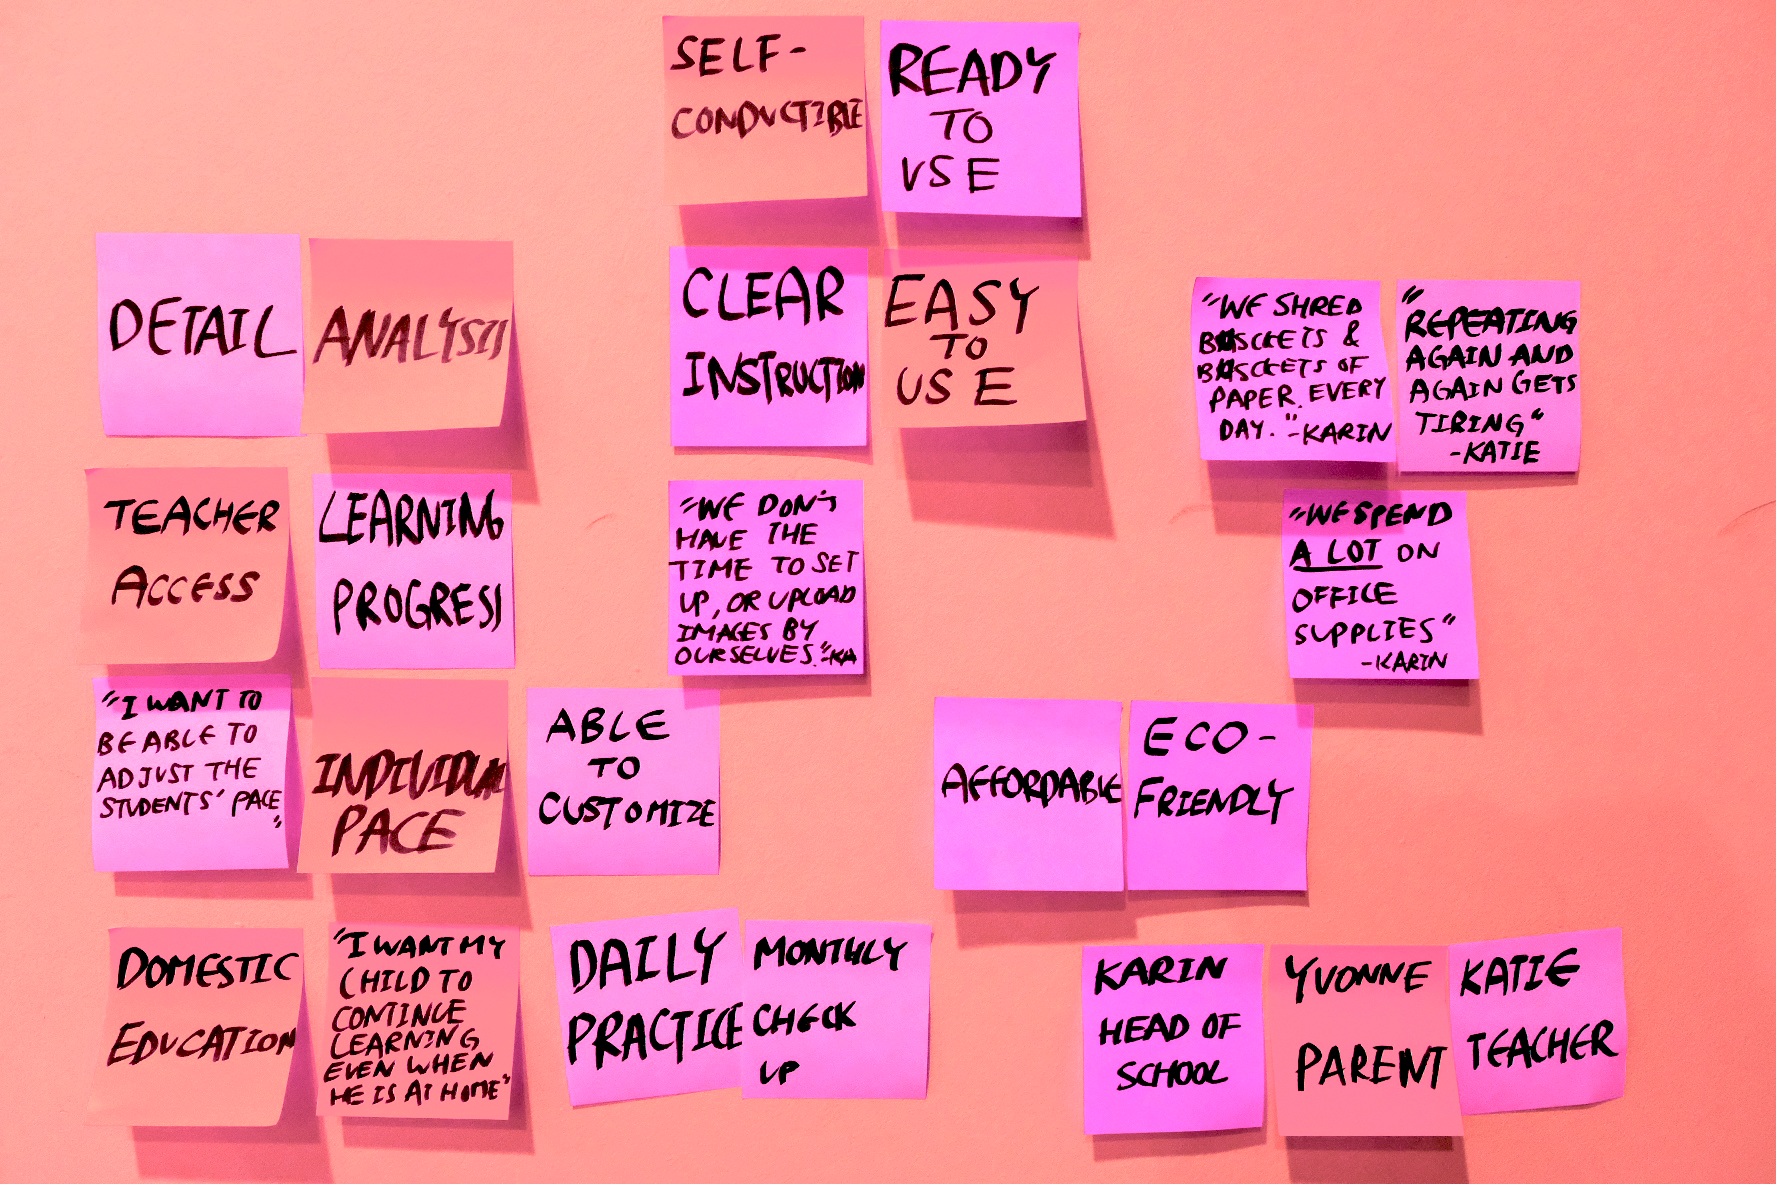 SELF-
CONDUCTIBLE
READY
TO
USE
DETAIL
ANALYSIS
CLEAR
INSTRUCTION
EASY
TO
USE
"WE SHRED
BASCKETS &
BASCKETS OF
PAPER EVERY
DAY." -KARIN
"REPEATING
AGAIN AND
AGAIN GETS
TIRING"
-KATIE
TEACHER
ACCESS
LEARNING
PROGRESS
"WE DON'T
HAVE THE
TIME TO SET
UP, OR UPLOAD
IMAGES BY
OURSELVES."-KA
"WE SPEND
A LOT ON
OFFICE
SUPPLIES"
-KARIN
"I WANT TO
BE ABLE TO
ADJUST THE
STUDENTS' PACE
"
INDIVIDUAL
PACE
ABLE
TO
CUSTOMIZE
AFFORDABLE
ECO-
FRIENDLY
DOMESTIC
EDUCATION
"I WANT MY
CHILD TO
CONTINUE
LEARNING
EVEN WHEN
HE IS AT HOME"
DAILY
PRACTICE
MONTHLY
CHECK
UP
KARIN
HEAD OF
SCHOOL
YVONNE
PARENT
KATIE
TEACHER